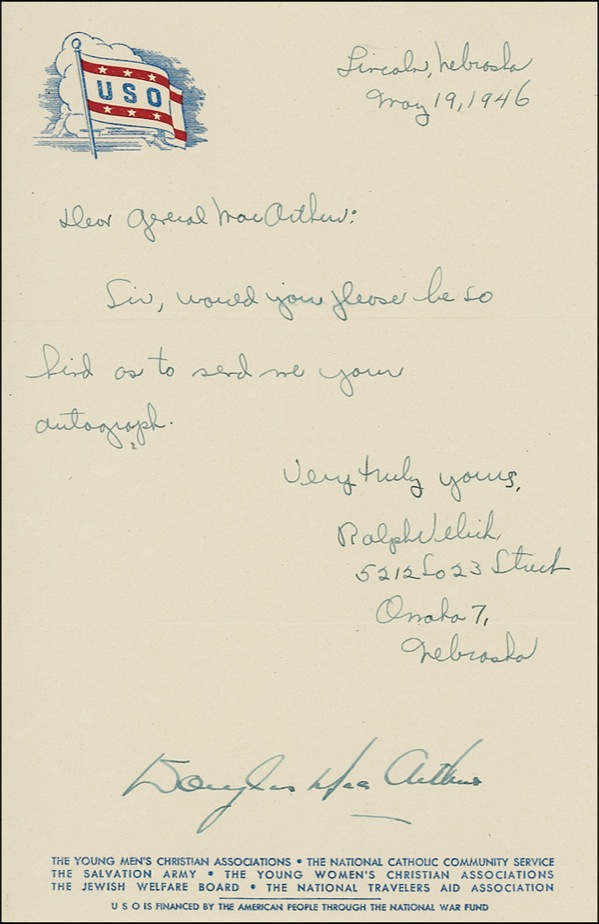 USO
Lincoln, Nebraska
May 19, 1946
Dear General MacArthur:
Sir, would you please be so
kind as to send me your
autograph.
Very truly yours,
Ralph Velich,
5212 So 23 Street
Omaha 7,
Nebraska
Douglas MacArthur
THE YOUNG MEN'S CHRISTIAN ASSOCIATIONS • THE NATIONAL CATHOLIC COMMUNITY SERVICE
THE SALVATION ARMY • THE YOUNG WOMEN'S CHRISTIAN ASSOCIATIONS
THE JEWISH WELFARE BOARD • THE NATIONAL TRAVELERS AID ASSOCIATION
U S O IS FINANCED BY THE AMERICAN PEOPLE THROUGH THE NATIONAL WAR FUND